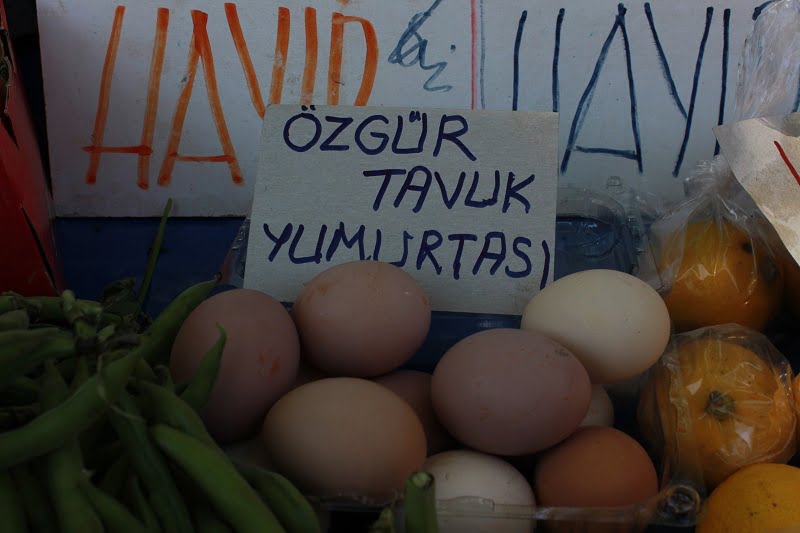 HAYIR
HAYI
ÖZGÜR
TAVUK
YUMURTASI